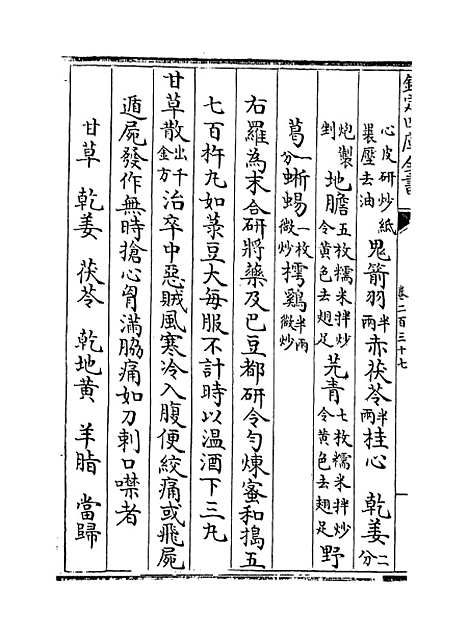 欽定四庫全書
卷二百三十七
心皮研炒紙裹壓去油 鬼箭羽半兩赤茯苓半兩桂心 乾姜二分
炮製剉 地膽五枚糯米拌炒令黄色去翅足 芫青七枚糯米拌炒令黄色去翅足 野
葛一分蜥蜴一枚微炒樗鷄半兩微炒
右羅為末合研將藥及巴豆都研令勻煉蜜和搗五
七百杵丸如菉豆大每服不計時以温酒下三丸
甘草散出千金方治卒中惡賊風寒冷入腹便絞痛或飛屍
遁屍發作無時搶心胷滿脇痛如刀刺口噤者
甘草 乾姜 茯苓 乾地黄 羊脂 當歸